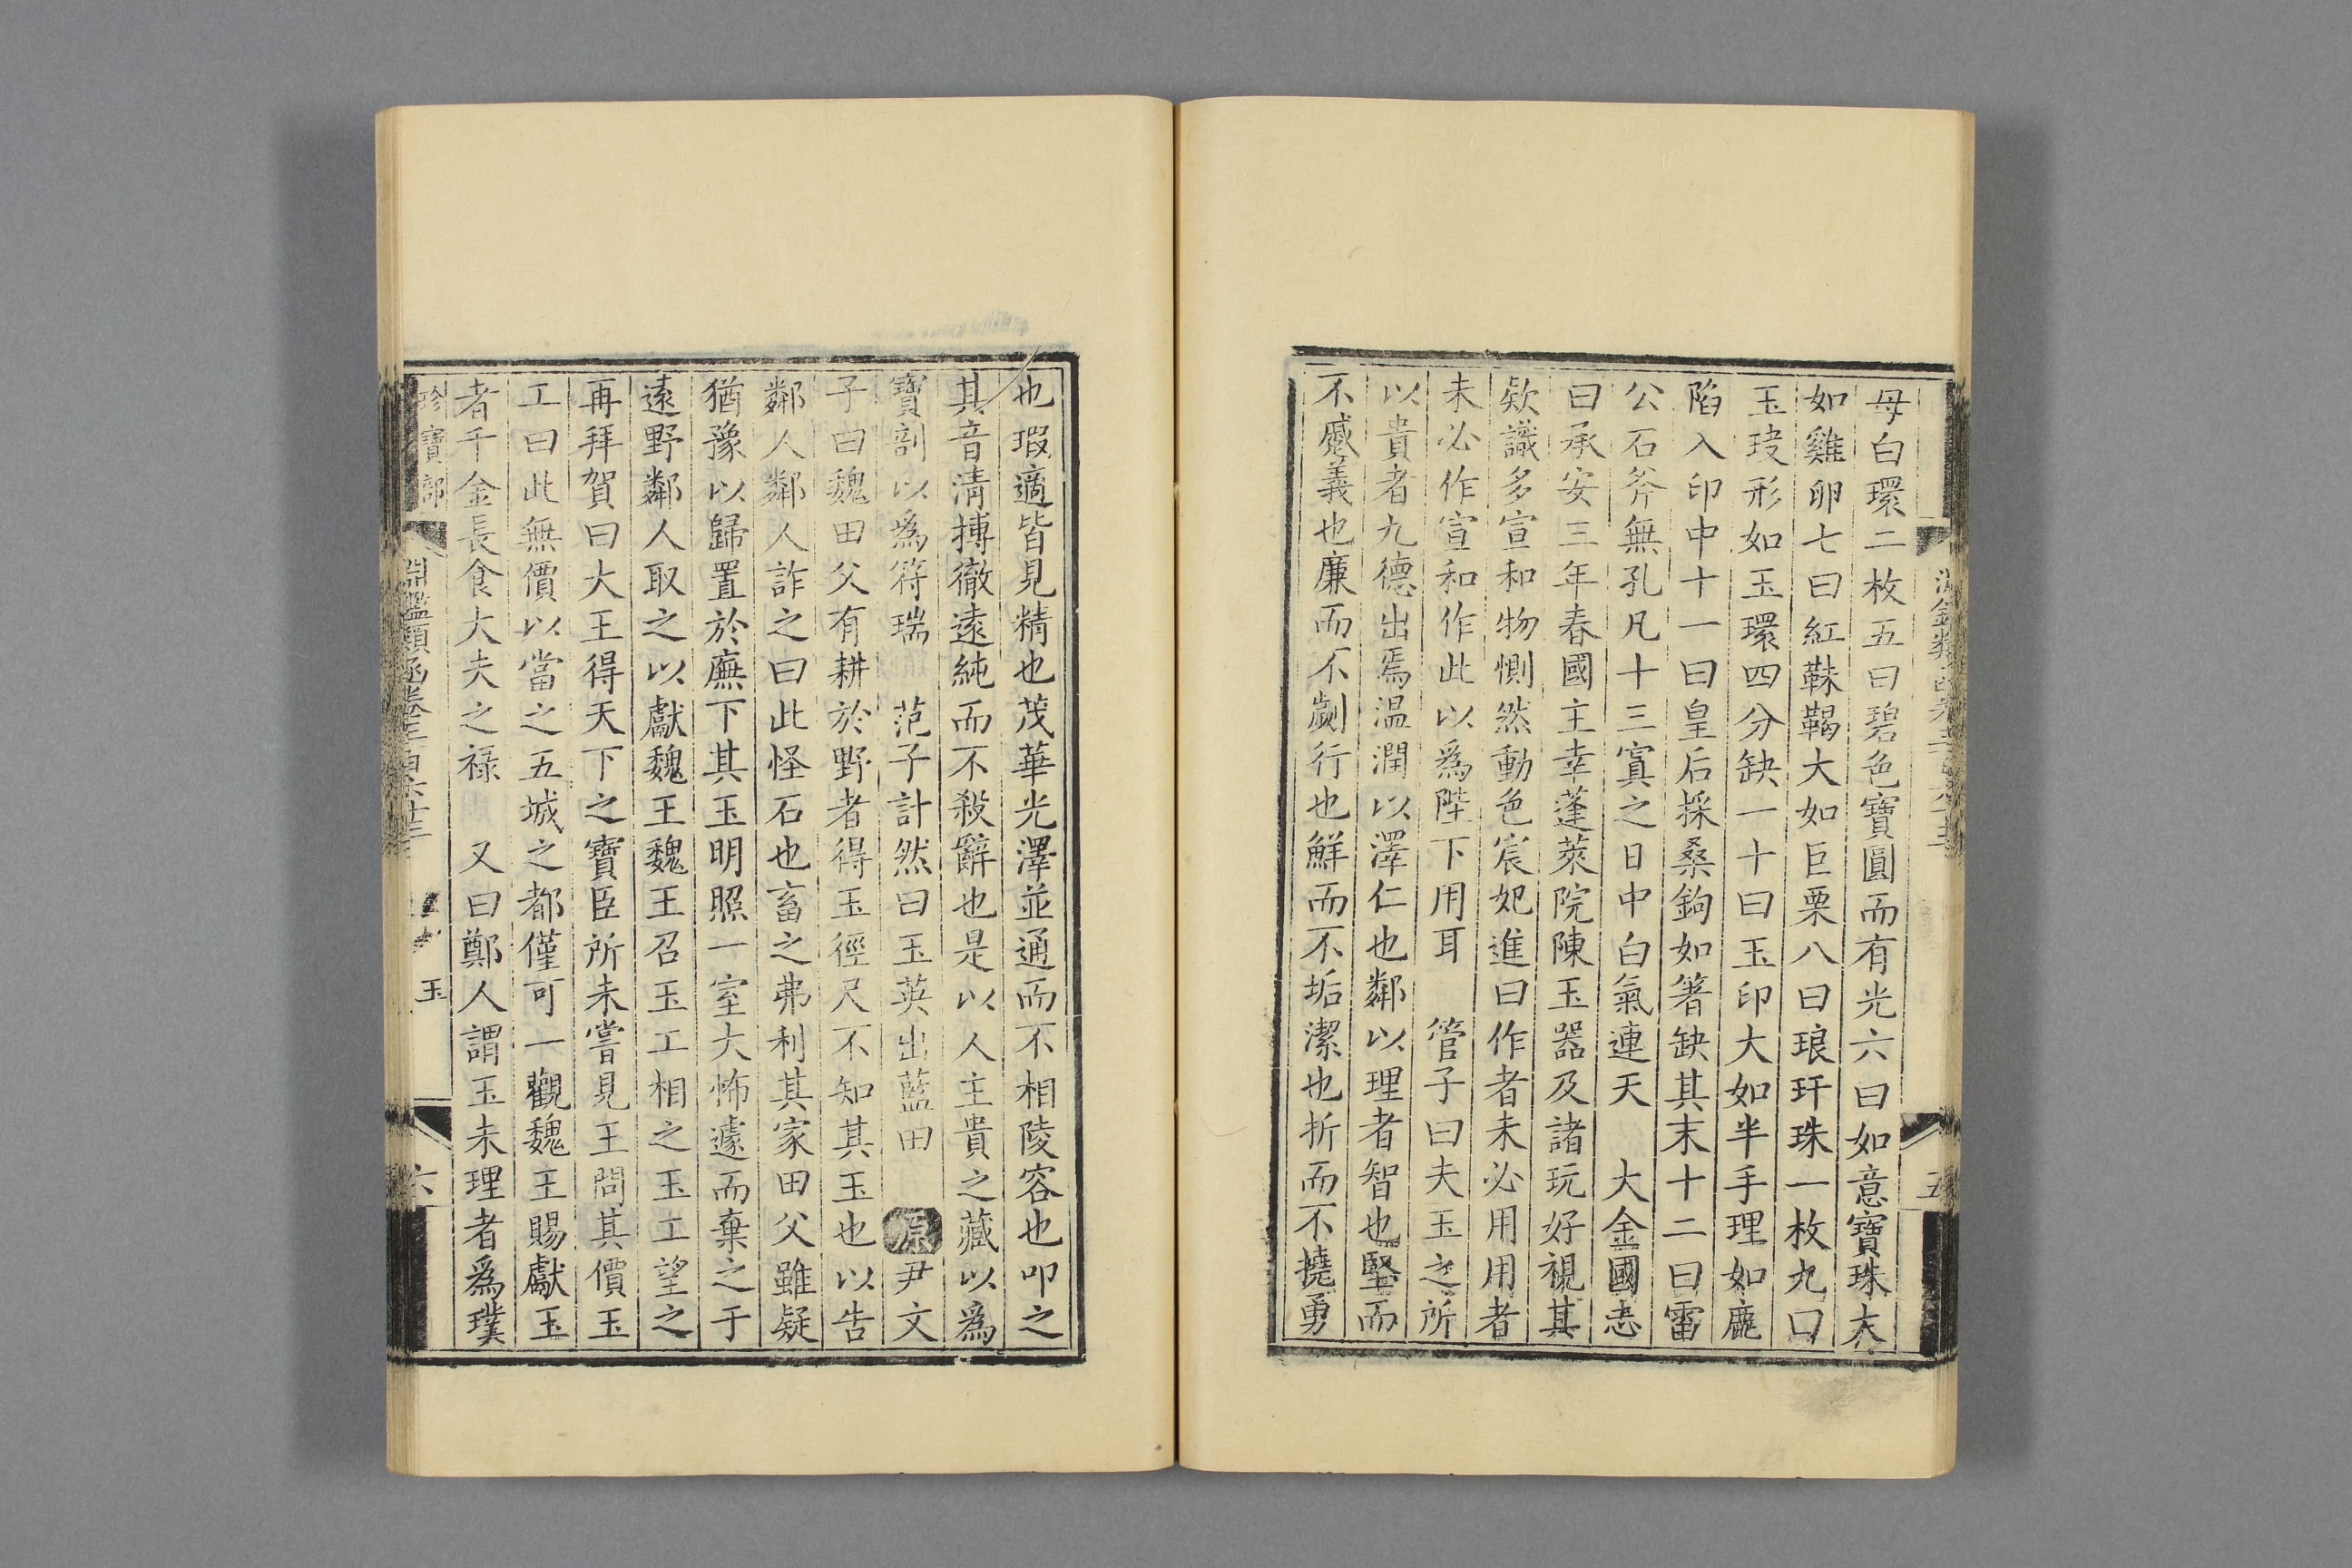 母白環二枚五曰碧色寶圓而有光六曰如意寶珠大
如雞卵七曰紅靺鞨大如巨栗八曰琅玕珠一枚九曰
玉玦形如玉環四分缺一十曰玉印大如半手理如鹿
陷入印中十一曰皇后採桑鉤如箸缺其末十二曰雷
公石斧無孔凡十三寘之日中白氣連天　大金國志
曰承安三年春國主幸蓬萊院陳玉器及諸玩好視其
欵識多宣和物惻然動色宸妃進曰作者未必用用者
未必作宣和作此以爲陛下用耳　管子曰夫玉之所
以貴者九德出焉温潤以澤仁也鄰以理者智也堅而
不蹙義也廉而不劌行也鮮而不垢潔也折而不撓勇
五
也瑕適皆見精也茂華光澤並通而不相陵容也叩之
其音清搏徹遠純而不殺辭也是以人主貴之藏以爲
寶剖以爲符瑞　范子計然曰玉英出藍田　原尹文
子曰魏田父有耕於野者得玉徑尺不知其玉也以告
鄰人鄰人詐之曰此怪石也畜之弗利其家田父雖疑
猶豫以歸置於廡下其玉明照一室大怖遽而棄之于
遠野鄰人取之以獻魏王魏王召玉工相之玉工望之
再拜賀曰大王得天下之寶臣所未嘗見王問其價玉
工曰此無價以當之五城之都僅可一觀魏王賜獻玉
者千金長食大夫之祿　又曰鄭人謂玉未理者爲璞
珍寶部
淵鑑類函卷三百六十三
玉
六